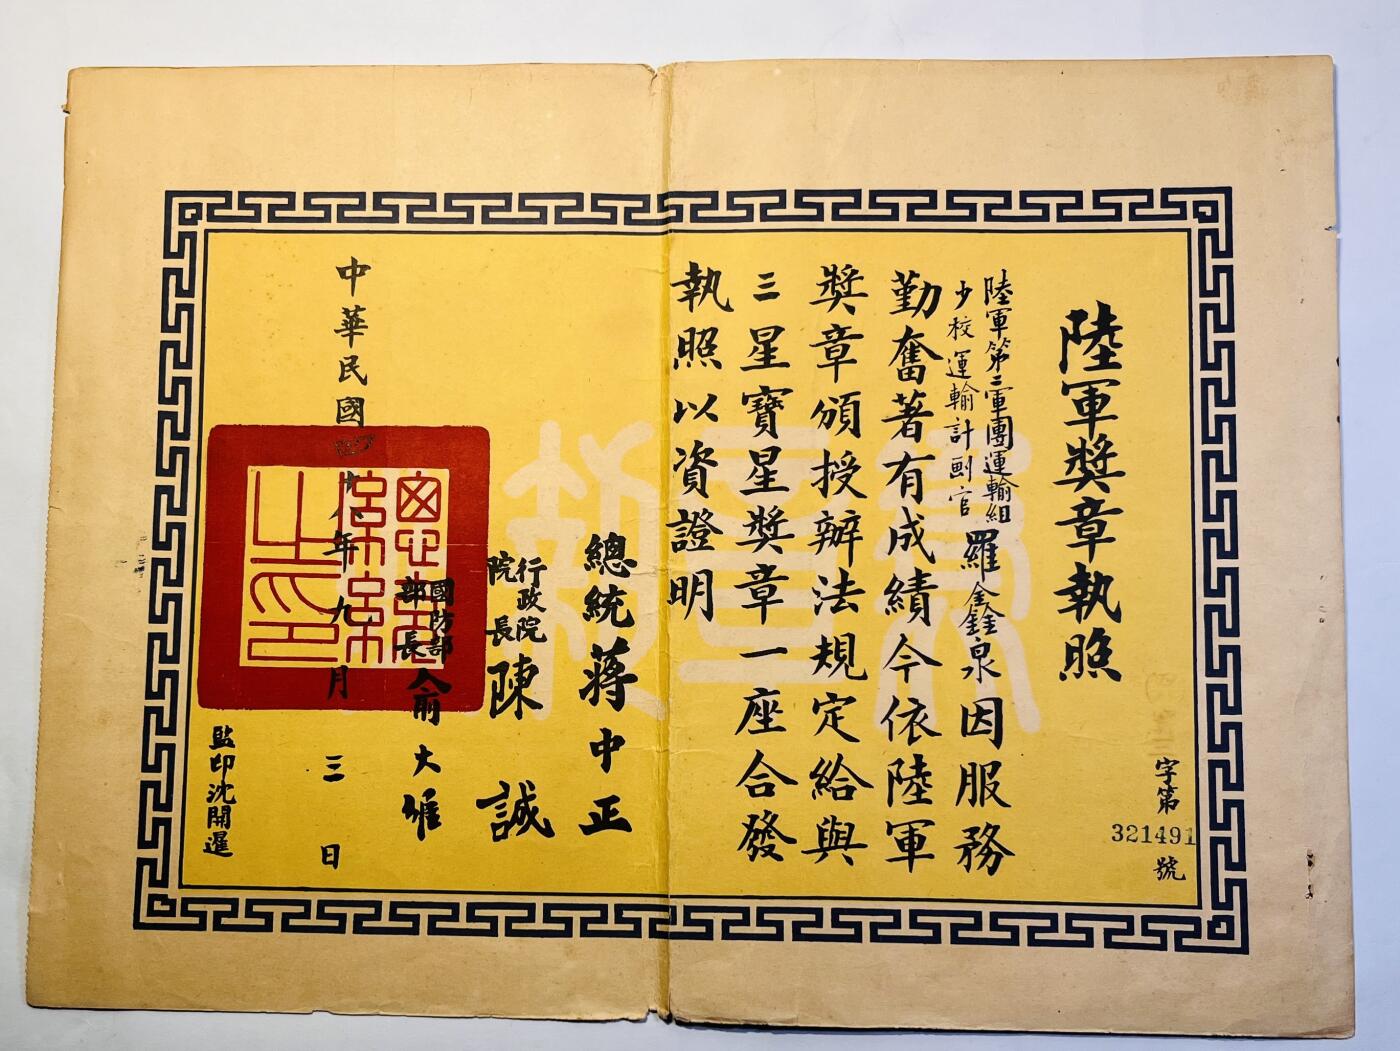 字第321491號
陸軍獎章執照
陸軍第二軍團運輸組
少校運輸計劃官
羅鑫泉因服務
勤奮著有成績今依陸軍
獎章頒授辦法規定給與
三星寶星獎章一座合發
執照以資證明
總統蔣中正
行政院
院長
陳誠
國防部
部長
俞大維
中華民國四十八年九月三日
總統之印
監印沈開暹